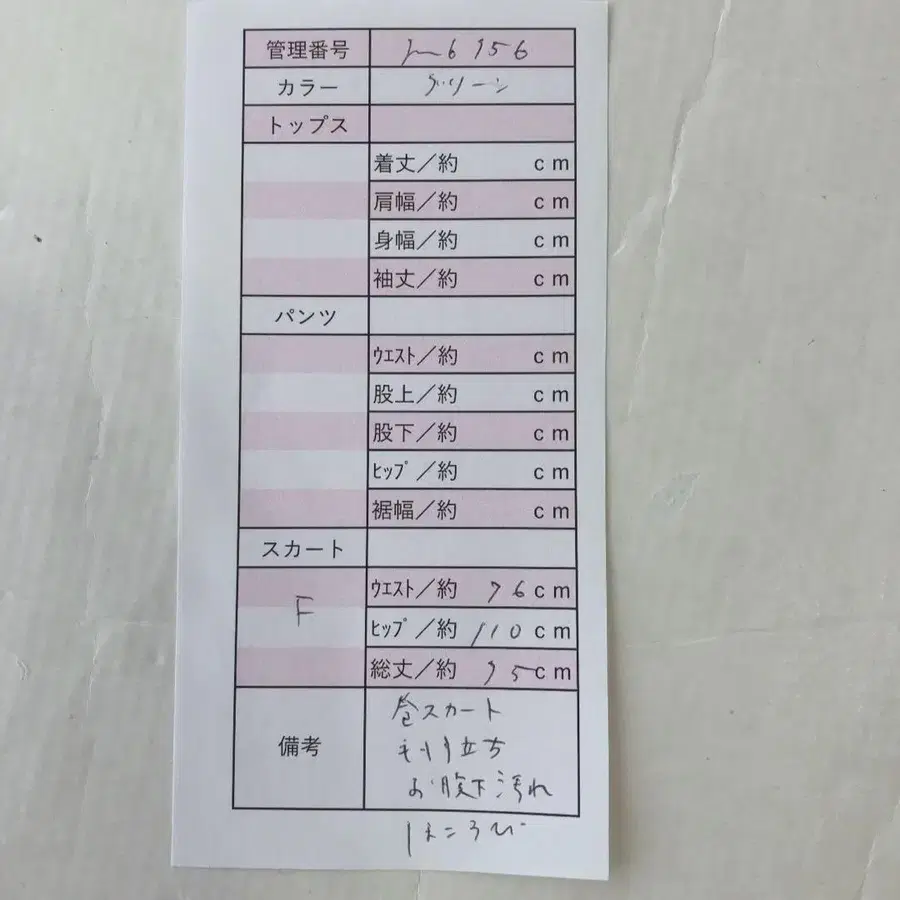 管理番号
カラー グリーン
トップス
着丈／約 cm
肩幅／約 cm
身幅／約 cm
袖丈／約 cm
パンツ
ｳｴｽﾄ／約 cm
股上／約 cm
股下／約 cm
ﾋｯﾌﾟ／約 cm
裾幅／約 cm
スカート
F
ｳｴｽﾄ／約 76cm
ﾋｯﾌﾟ／約 110cm
総丈／約 95cm
備考
巻スカート
毛羽立ち
汚れ
ほころび